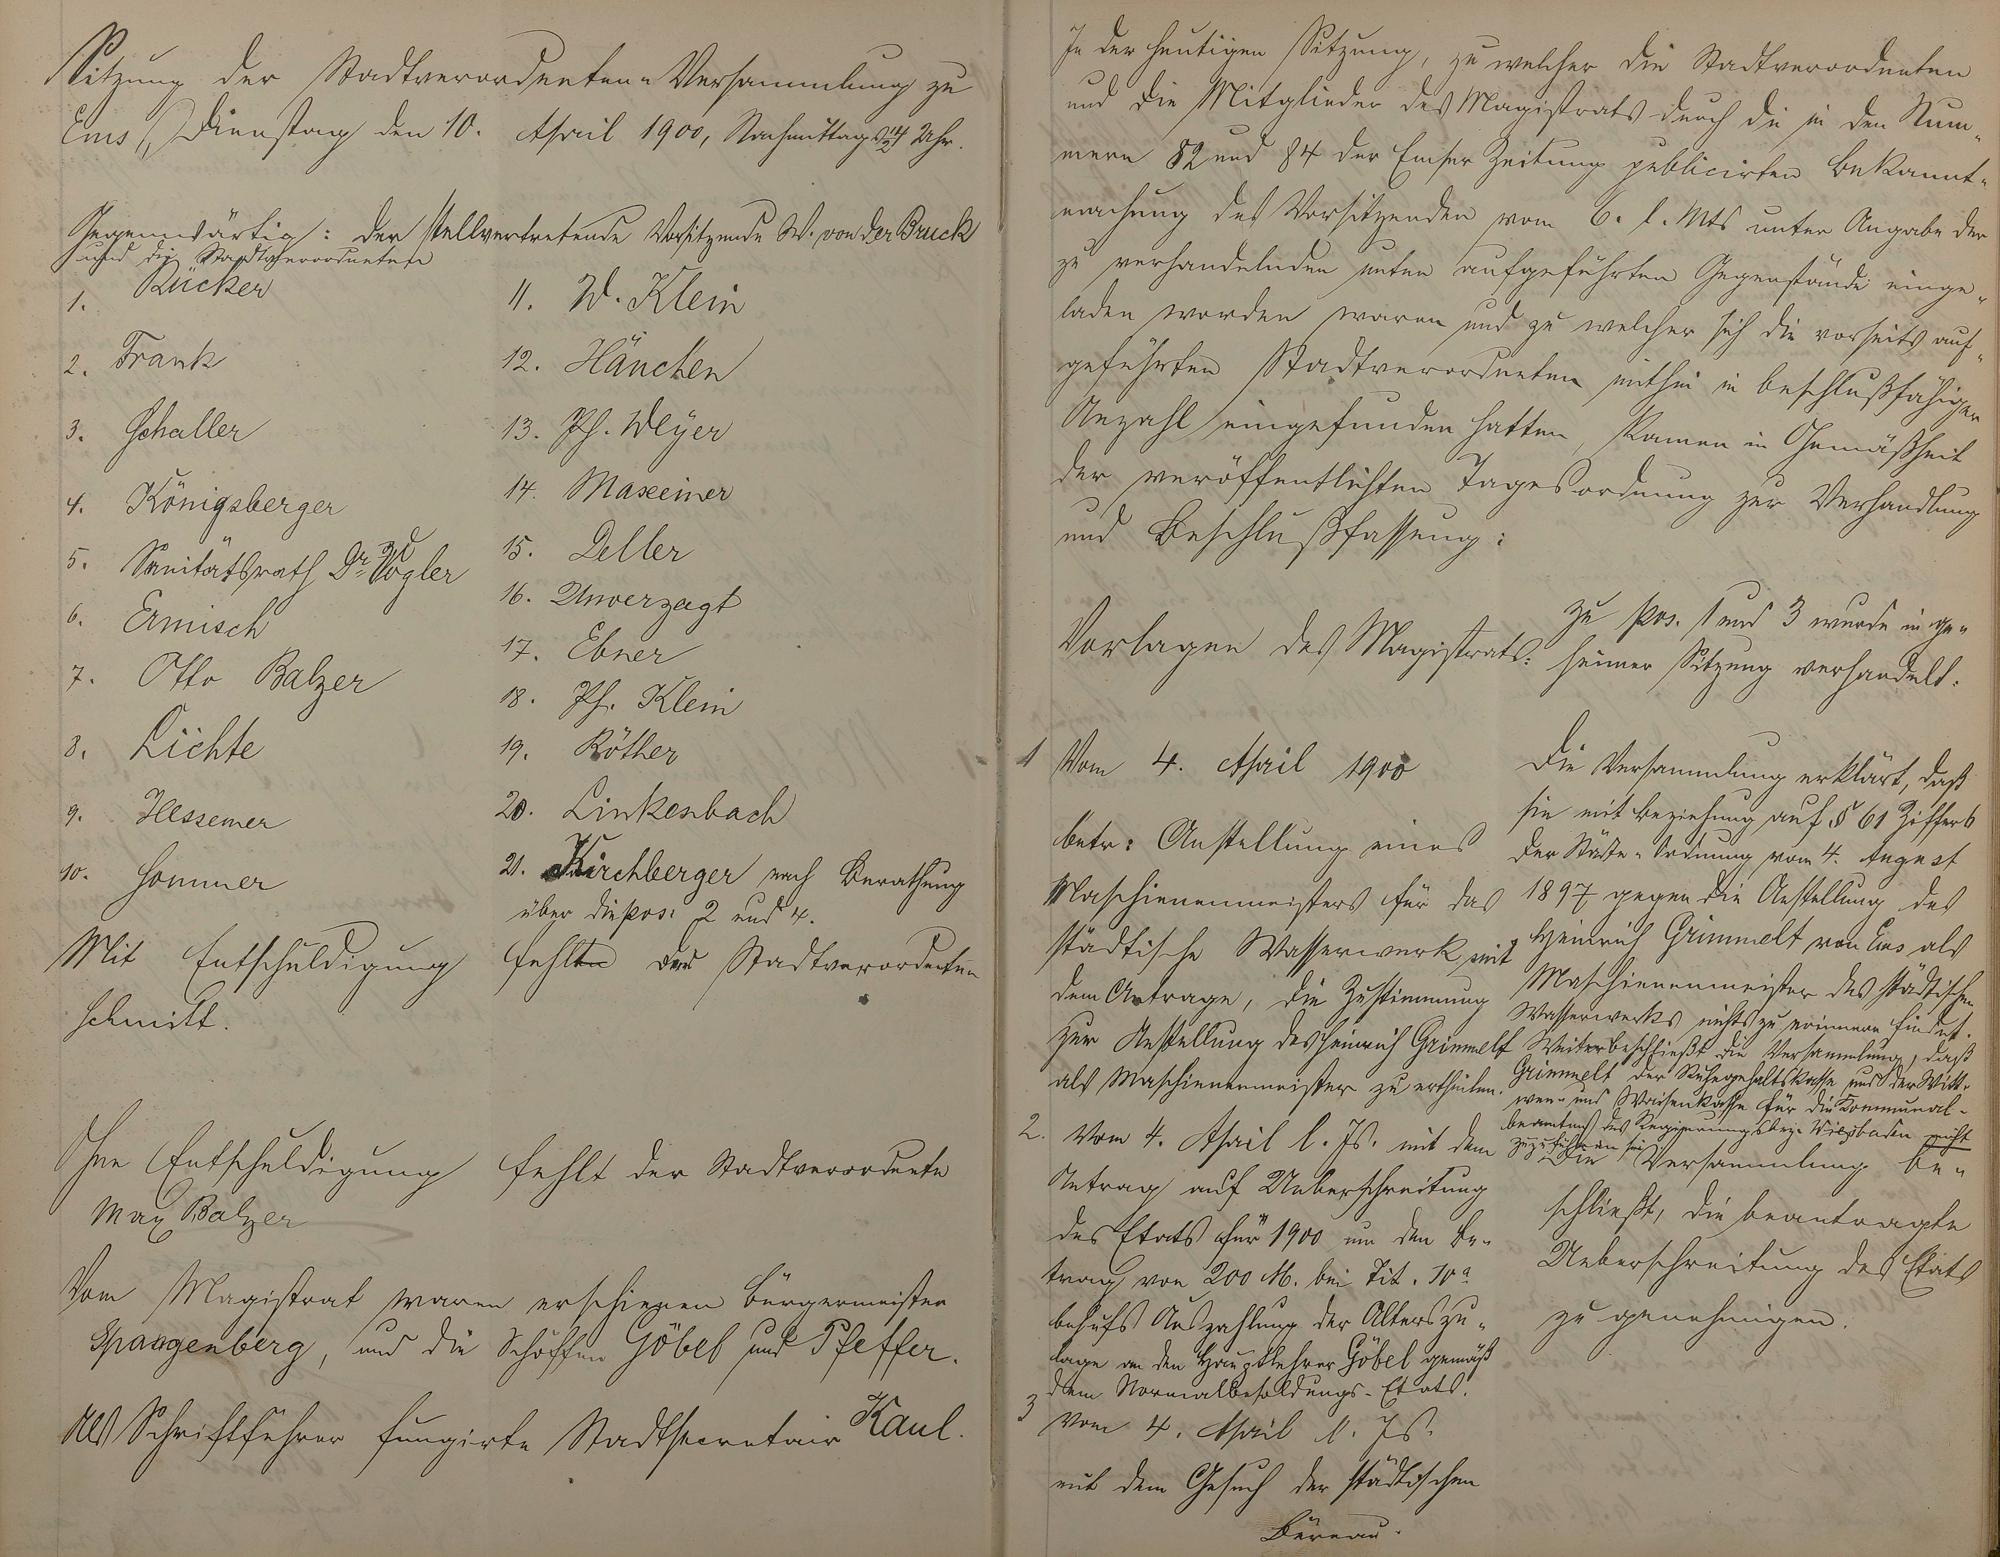 Sitzung der Stadtverordneten-Versammlung zu
Ems, Dienstag den 10. April 1900, Nachmittags 4 Uhr.
Gegenwärtig: der stellvertretende Vorsitzende W. von der Bruck
und die Stadtverordneten
1. Rücker
2. Frank
3. Schaller
4. Königsberger
5. Sanitätsrath Dr. Vogler
6. Ermisch
7. Otto Balzer
8. Lichte
9. Hessemer
10. Sommer
11. W. Klein
12. Hänchen
13. Ph. Weyer
14. Maxeiner
15. Deller
16. Unverzagt
17. Ebner
18. Ph. Klein
19. Röther
20. Linkenbach
21. Kirchberger nach Berathung
über die pos: 2 und 4.
Mit Entschuldigung fehlten der Stadtverordneten
Schmitt.
Ohne Entschuldigung fehlt der Stadtverordnete
Max Balzer
Vom Magistrat waren erschienen Bürgermeister
Spangenberg, und die Schöffen Göbel und Pfeffer.
Als Schriftführer fungirte Stadtsecretair Kaul.
In der heutigen Sitzung, zu welcher die Stadtverordneten
und die Mitglieder des Magistrats durch die in den Num-
mern 82 und 84 der Emser Zeitung publicirten Bekannt-
machung des Vorsitzenden vom 6. l. Mts unter Angabe der
zu verhandelnden unten aufgeführten Gegenstände einge-
laden worden waren und zu welcher sich die vorseits auf-
geführten Stadtverordneten mithin in beschlußfähiger
Anzahl eingefunden hatten, kamen in Gemäßheit
der veröffentlichten Tagesordnung zur Verhandlung
und Beschlußfassung:
Vorlagen des Magistrats:
1 Vom 4. April 1900
betr: Anstellung eines
Maschienenmeisters für das
städtische Wasserwerk, mit
dem Antrage, die Zustimmung
zur Anstellung des Heinrich Grimmelt
als Maschienenmeister zu ertheilen.
2. Vom 4. April l. Js. mit dem
Antrag auf Ueberschreitung
des Etats für 1900 um den Be-
trag von 200 M. bei Tit. 10a
behufs Auszahlung der Alterszu-
lage an den Hauptlehrer Göbel gemäß
dem Normalbesoldungs-Etats.
3 Vom 4. April l. Js.
mit dem Gesuch der städtischen
Büreau-
Zu pos. 1 und 3 wurde in ge-
heimer Sitzung verhandelt.
Die Versammlung erklärt, daß
sie mit Beziehung auf § 61 Ziffer 6
der Städte-Ordnung vom 4. August
1897 gegen die Anstellung des
Heinrich Grimmelt von Ems als
Maschienenmeister des städtischen
Wasserwerks nichts zu erinnern findet.
Weiter beschließt die Versammlung, daß
Grimmelt der Ruhegehaltskasse und der Witt-
wen- und Waisenkasse für die Kommunal-
beamten des Regierungsbez. Wiesbaden nicht
zuzuführen sei.
Die Versammlung be-
schließt, die beantragte
Ueberschreitung des Etats
zu genehmigen.